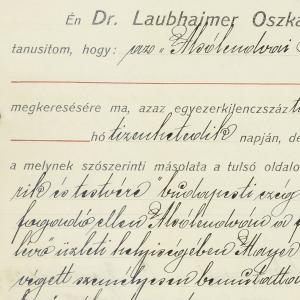 Én Dr. Laubhaimer Oszká
tanusitom, hogy: az „Alsólendvai
megkeresésére ma, azaz egyezerkilenczszáz
hó tizenhetedik napján, de
a melynek szószerinti másolata a tulsó oldalo
rik és testvére" budapesti czég
fogandó ellen Alsólendván a f
levő üzleti helyiségében Mayer
végett személyesen bemutattam